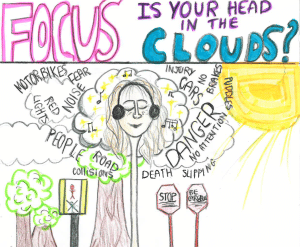 FOCUS
IS YOUR HEAD
IN THE
CLOUDS?
MOTORBIKES
FEAR
NOISE
RED
LIGHTS
PEOPLE
ROAD
COLLISIONS
INJURY
CARS
NO
BRAKES
PUDDLES
DANGER
NO ATTENTION
DEATH
SLIPPING
STOP
BE